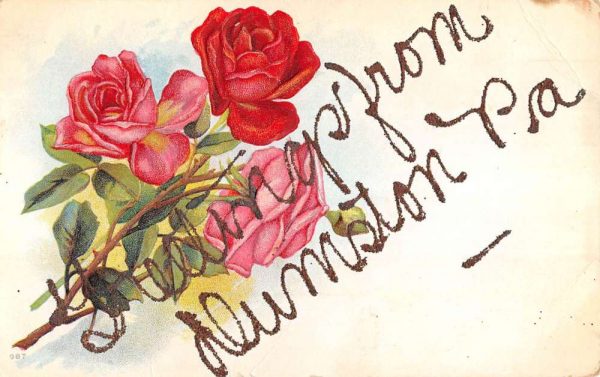 Greetings from
Numston Pa
987